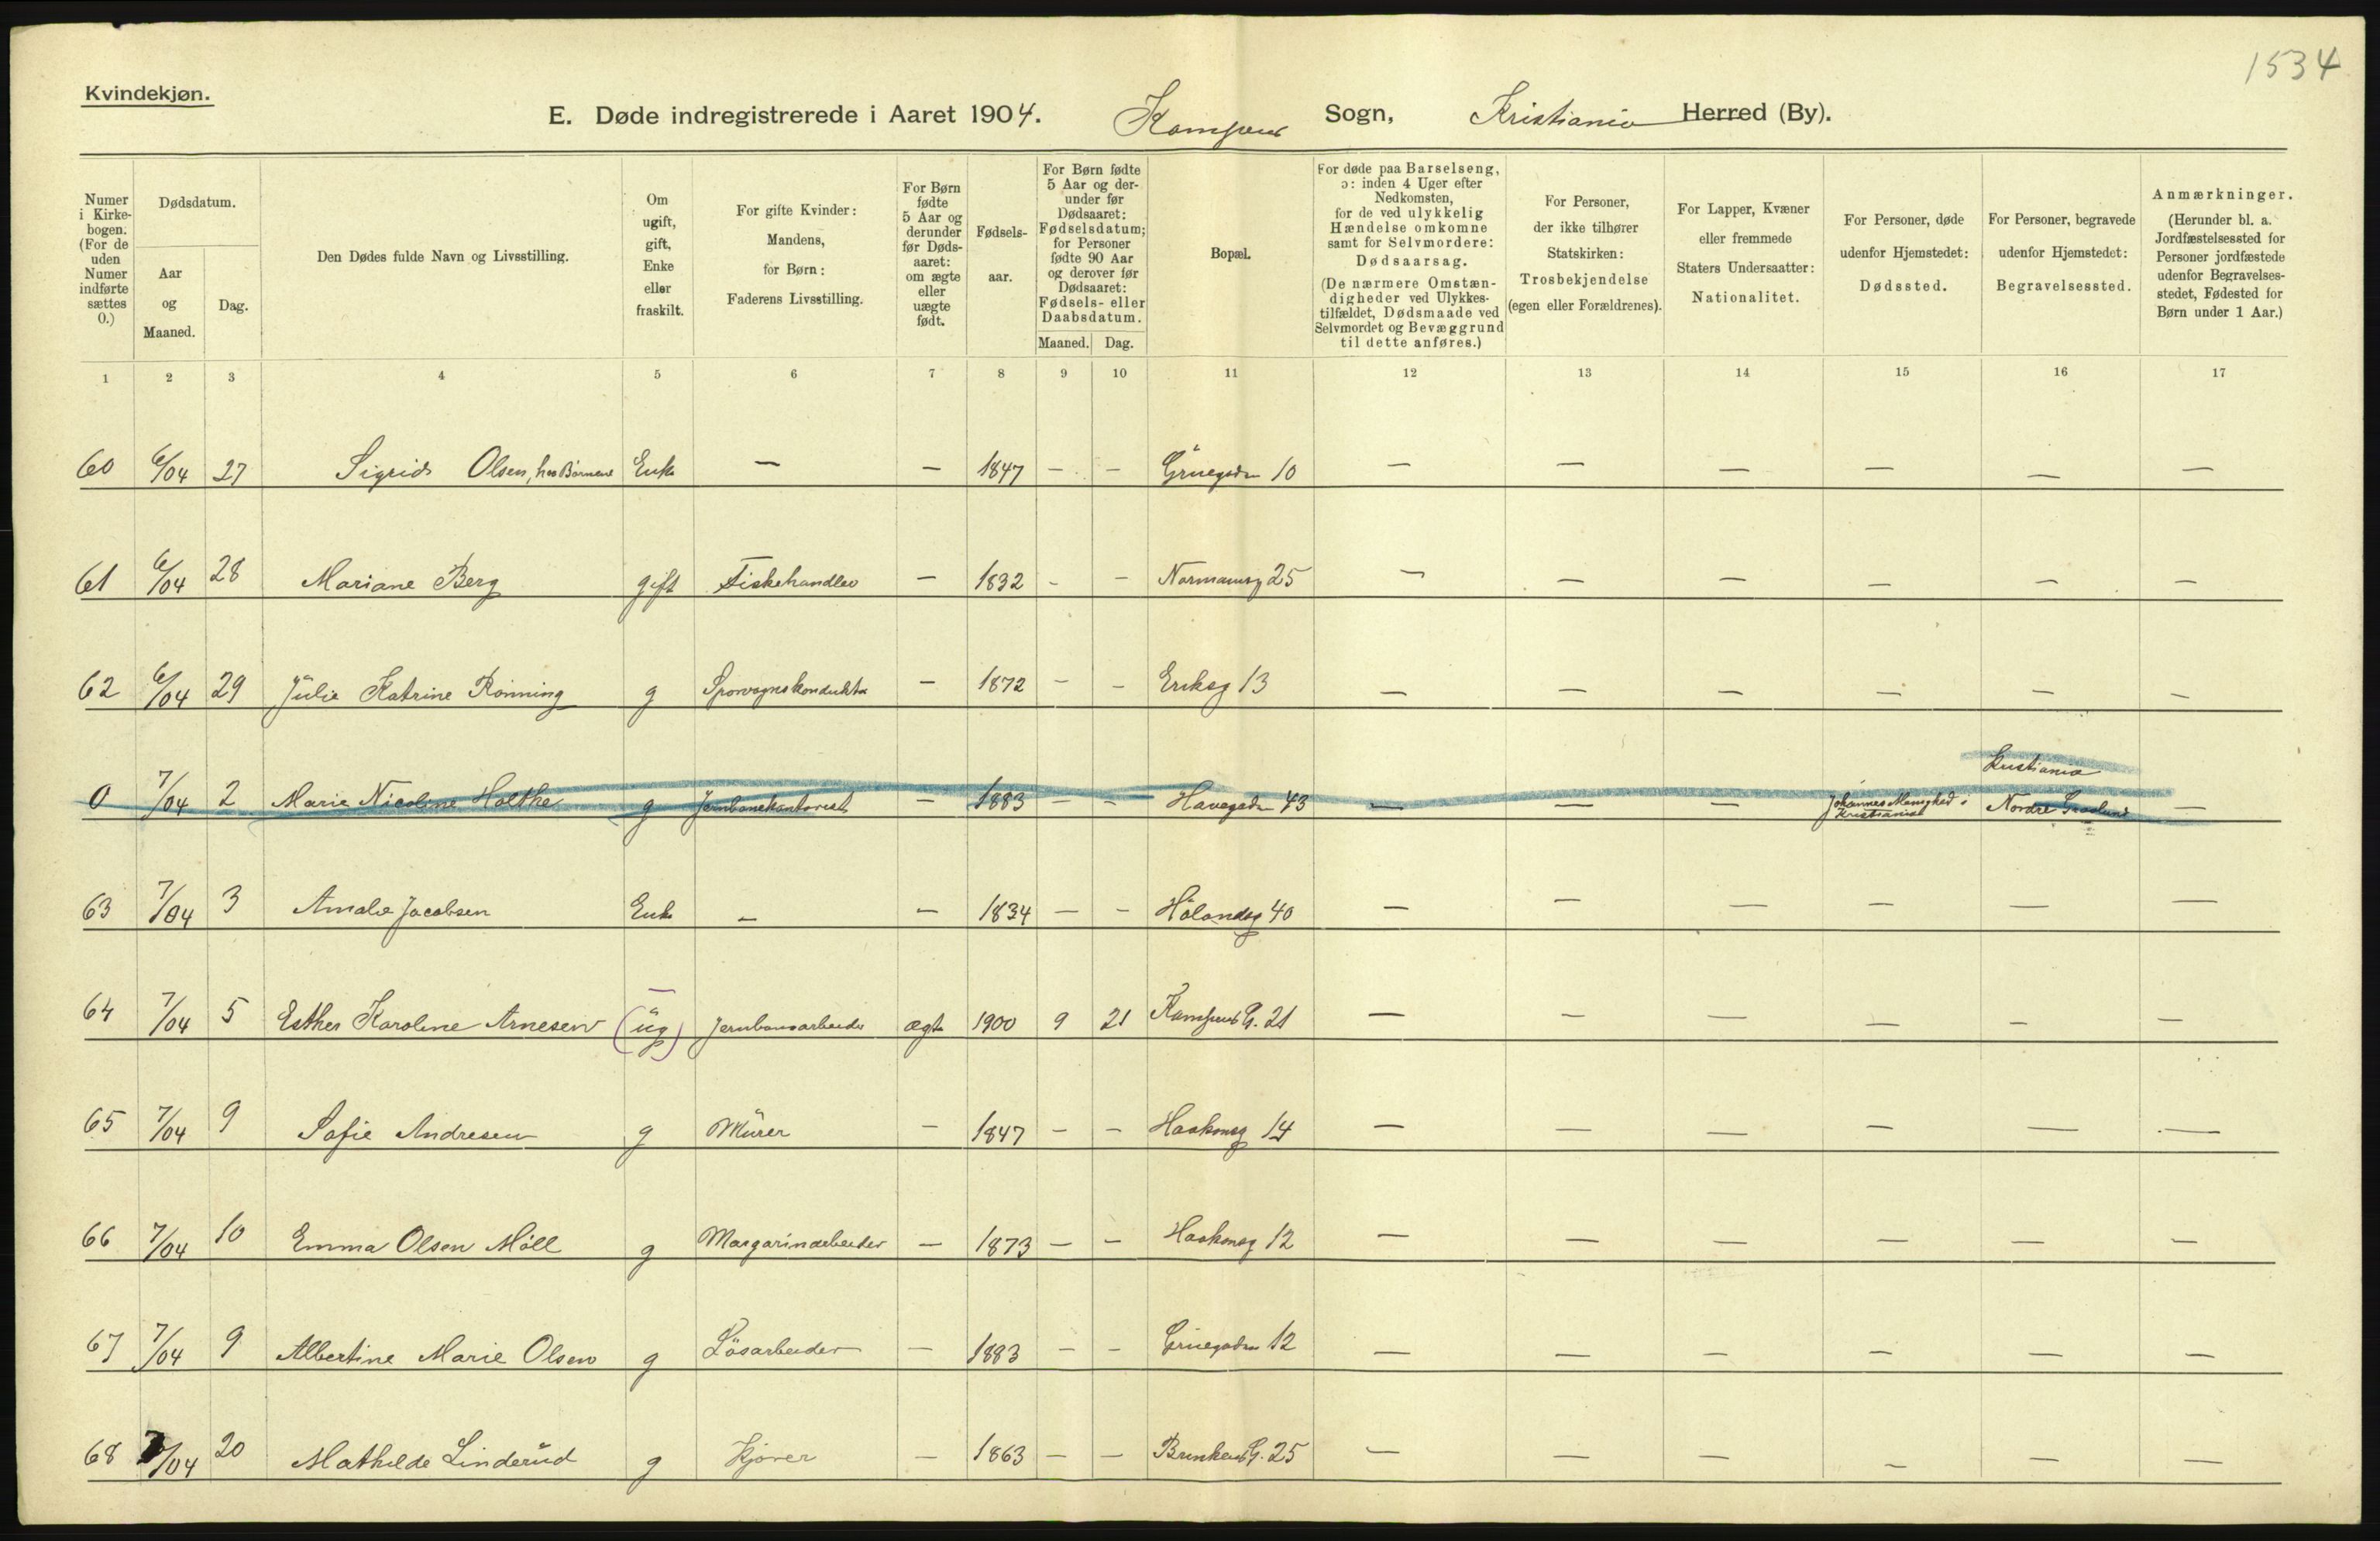 1534
Kvindekjøn.
E. Døde indregistrerede i Aaret 1904. Kampens Sogn, Kristiania Herred (By).
Numer i Kirkebogen. (For de uden Numer indførte sættes 0.)
Dødsdatum.
Aar og Maaned.
Dag.
Den Dødes fulde Navn og Livsstilling.
Om ugift, gift, Enke eller fraskilt.
For gifte Kvinder: Mandens, for Børn: Faderens Livsstilling.
For Børn fødte 5 Aar og derunder før Dødsaaret: om ægte eller uægte født.
Fødselsaar.
For Børn fødte 5 Aar og derunder før Dødsaaret: Fødselsdatum; for Personer fødte 90 Aar og derover før Dødsaaret: Fødsels- eller Daabsdatum.
Maaned. Dag.
Bopæl.
For døde paa Barselseng, ɔ: inden 4 Uger efter Nedkomsten, for de ved ulykkelig Hændelse omkomne samt for Selvmordere: Dødsaarsag.
(De nærmere Omstændigheder ved Ulykkestilfældet, Dødsmaade ved Selvmordet og Bevæggrund til dette anføres.)
For Personer, der ikke tilhører Statskirken: Trosbekjendelse (egen eller Forældrenes).
For Lapper, Kvæner eller fremmede Staters Undersaatter: Nationalitet.
For Personer, døde udenfor Hjemstedet: Dødssted.
For Personer, begravede udenfor Hjemstedet: Begravelsessted.
Anmærkninger.
(Herunder bl. a. Jordfæstelsessted for Personer jordfæstede udenfor Begravelsesstedet, Fødested for Børn under 1 Aar.)
1 2 3 4 5 6 7 8 9 10 11 12 13 14 15 16 17
60 6/04 27 Sigrid Olsen, hos Børnene Enke — — 1847 — — Grüegaden 10 — — — — — —
61 6/04 28 Mariane Berg gift Fiskehandler — 1832 — — Normannsg 25 — — — — — —
62 6/04 29 Julie Katrine Rønning g Sporvognskonduktør — 1872 — — Eriksg 13 — — — — — —
Kristiania
0 7/04 2 Marie Nicoline Holthe g Jernbanekontorist — 1883 — — Havegaden 43 — — — Johannes Menighed i Kristiania Nordre —
63 7/04 3 Amalie Jacobsen Enke — — 1834 — — Hølandsg 40 — — — — — —
64 7/04 5 Esther Karoline Arnesen (ug) Jernbanearbeider ægte 1900 9 21 Kampens G. 21 — — — — — —
65 7/04 9 Sofie Andresen g Murer — 1847 — — Haakonsg 14 — — — — — —
66 7/04 10 Emma Olsen Moll g Margarinarbeider — 1873 — — Haakonsg 12 — — — — — —
67 7/04 9 Albertine Marie Olsen g Løsarbeider — 1883 — — Gruegaden 12 — — — — — —
68 7/04 20 Mathilde Linderud g Kjører — 1863 — — Brinkens G. 25 — — — — — —